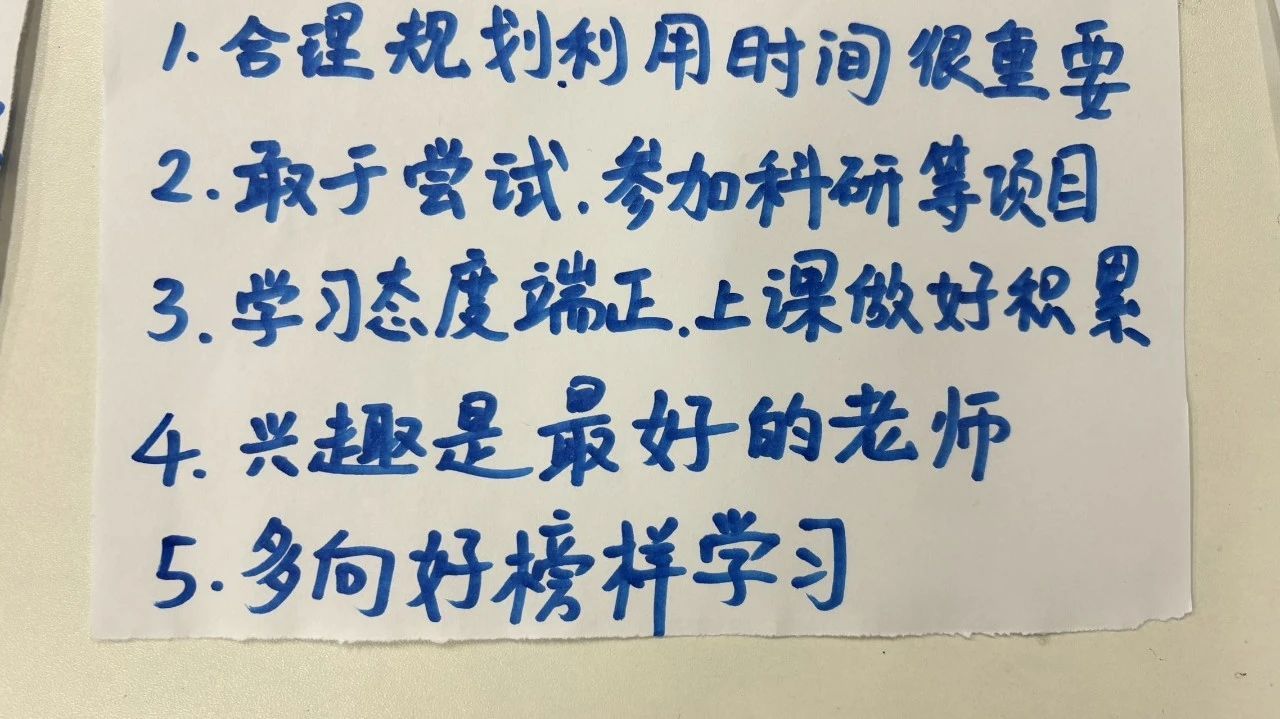 1.合理规划利用时间很重要
2.敢于尝试.参加科研等项目
3.学习态度端正.上课做好积累
4.兴趣是最好的老师
5.多向好榜样学习